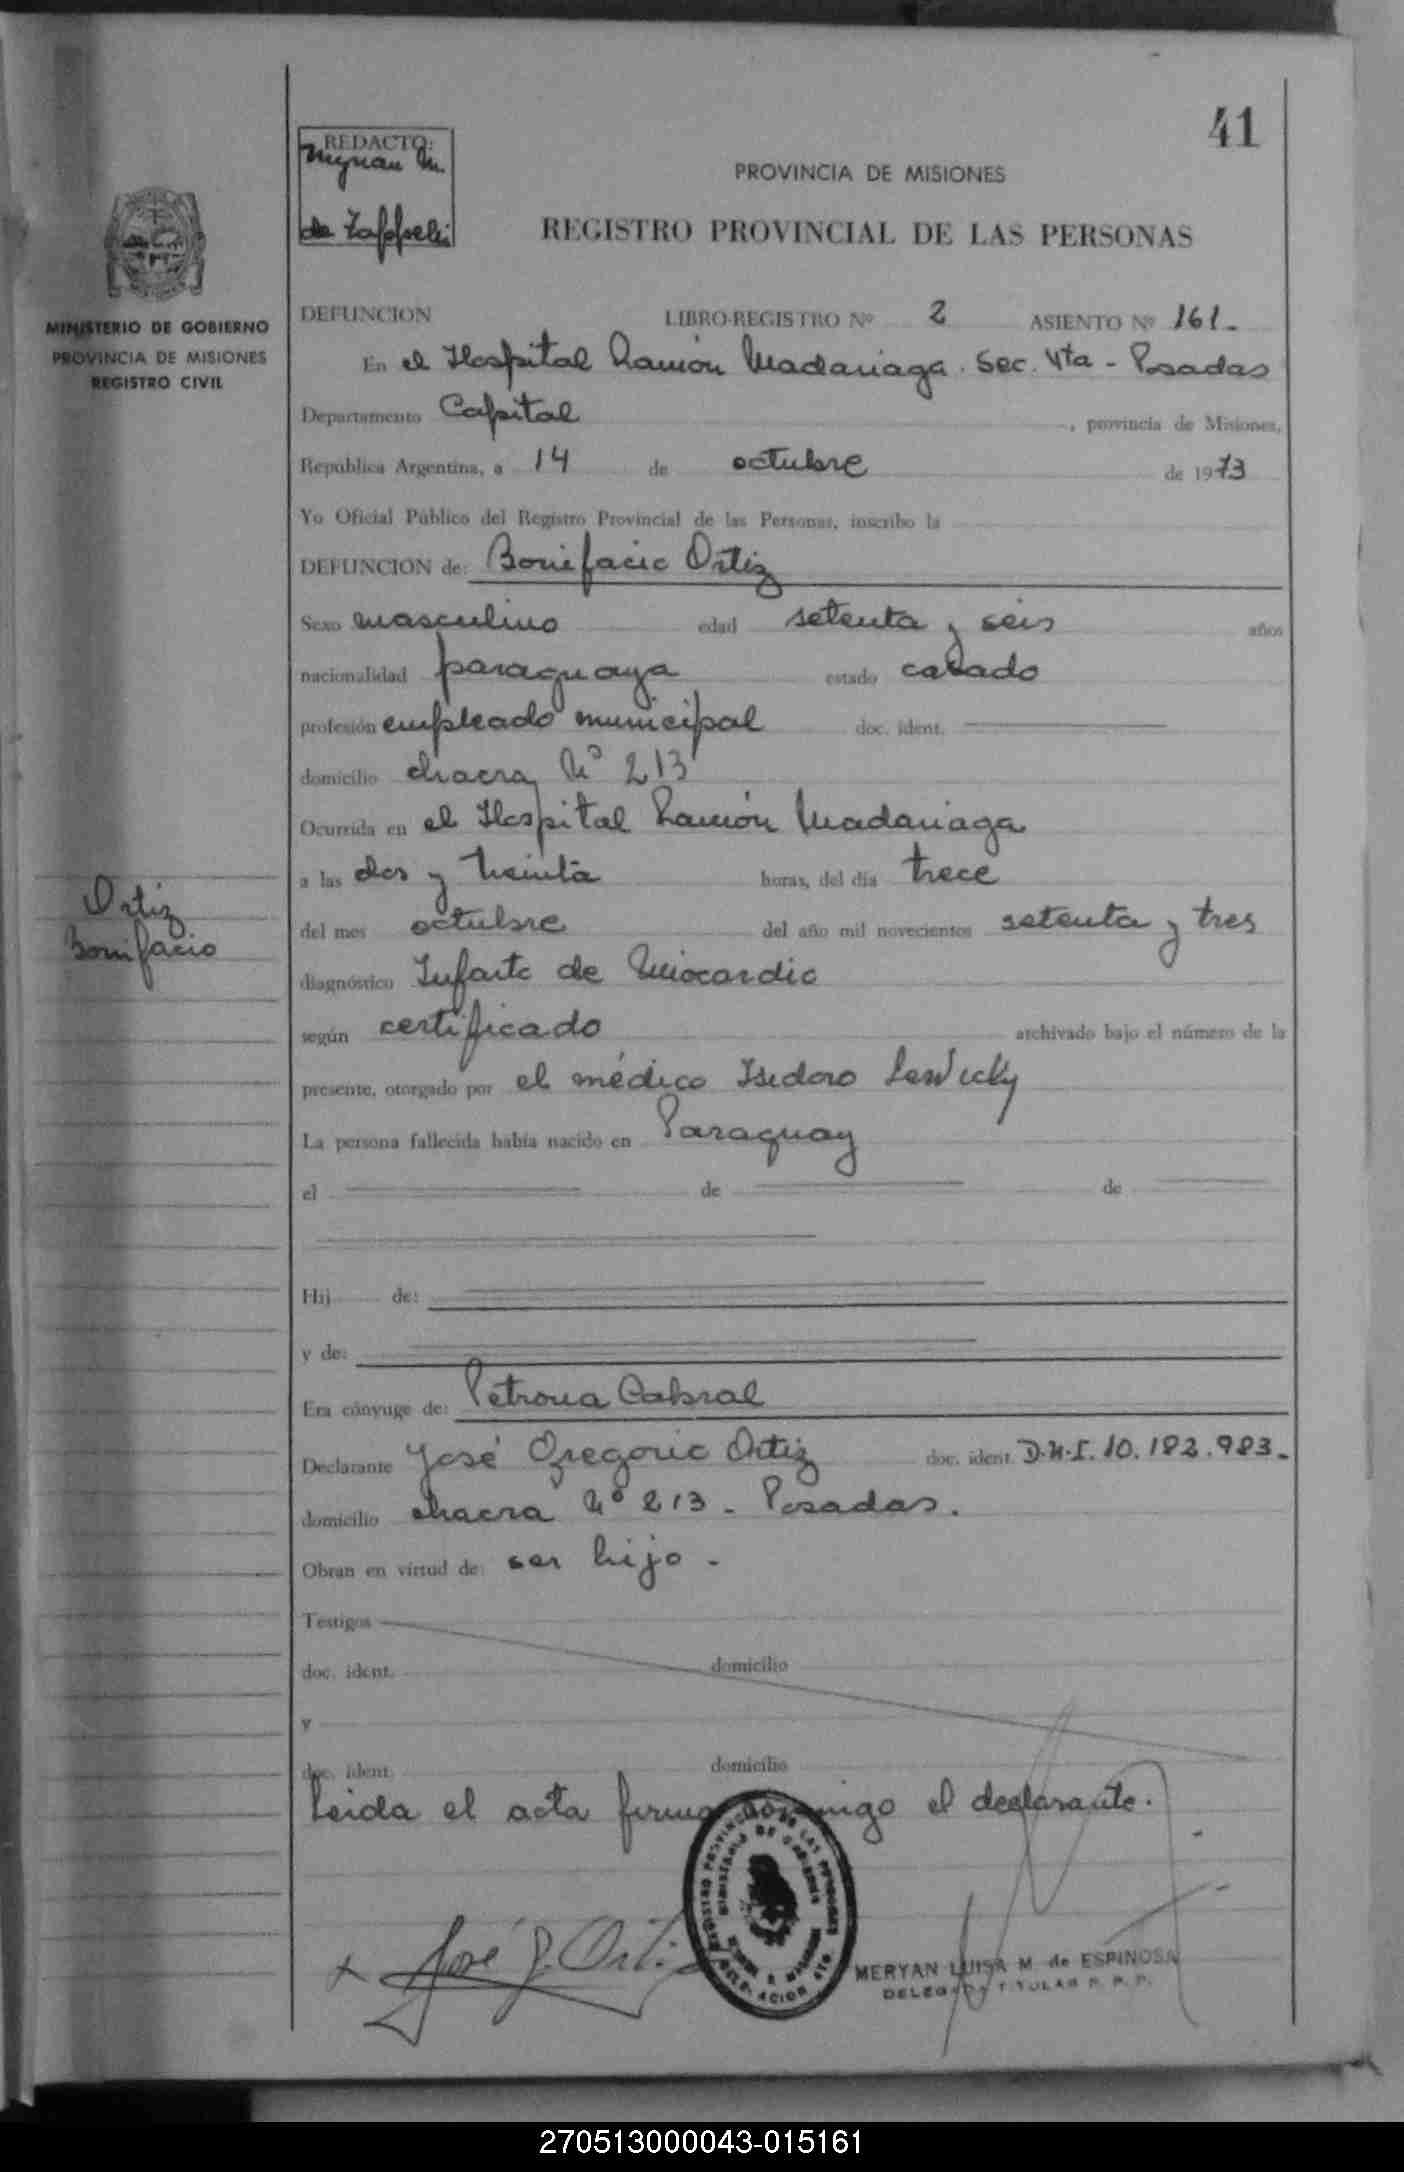 41
REDACTO:
Myrian M.
de Zappeli
PROVINCIA DE MISIONES
REGISTRO PROVINCIAL DE LAS PERSONAS
MINISTERIO DE GOBIERNO
PROVINCIA DE MISIONES
REGISTRO CIVIL
DEFUNCION LIBRO-REGISTRO Nº 2 ASIENTO Nº 161.-
En el Hospital Ramón Madariaga. Sec. 4ta - Posadas
Departamento Capital, provincia de Misiones,
República Argentina, a 14 de octubre de 1973
Yo Oficial Público del Registro Provincial de las Personas, inscribo la
DEFUNCION de: Bonifacio Ortiz
Sexo masculino edad setenta y seis años
nacionalidad paraguaya estado casado
profesión empleado municipal doc. ident.
domicilio chacra Nº 213
Ocurrida en el Hospital Ramón Madariaga
a las dos y treinta horas, del día trece
del mes octubre del año mil novecientos setenta y tres
diagnóstico Infarto de Miocardio
según certificado archivado bajo el número de la
presente, otorgado por el médico Isidoro Lewicky
La persona fallecida había nacido en Paraguay
el de de
Hij de:
y de:
Era cónyuge de: Petrona Cabral
Declarante José Gregorio Ortiz doc. ident. D.N.I. 10.182.983.-
domicilio chacra Nº 213 - Posadas.
Obran en virtud de: ser hijo -
Testigos
doc. ident. domicilio
y
doc. ident. domicilio
Leida el acta firma conmigo el declarante.
Ortiz
Bonifacio
x José G. Ortiz
REGISTRO PROVINCIAL DE LAS PERSONAS
MINISTERIO DE GOBIERNO
DELEGACION 4TA.
MERYAN LUISA M. de ESPINOSA
DELEGADA TITULAR R. P. P.
270513000043-015161